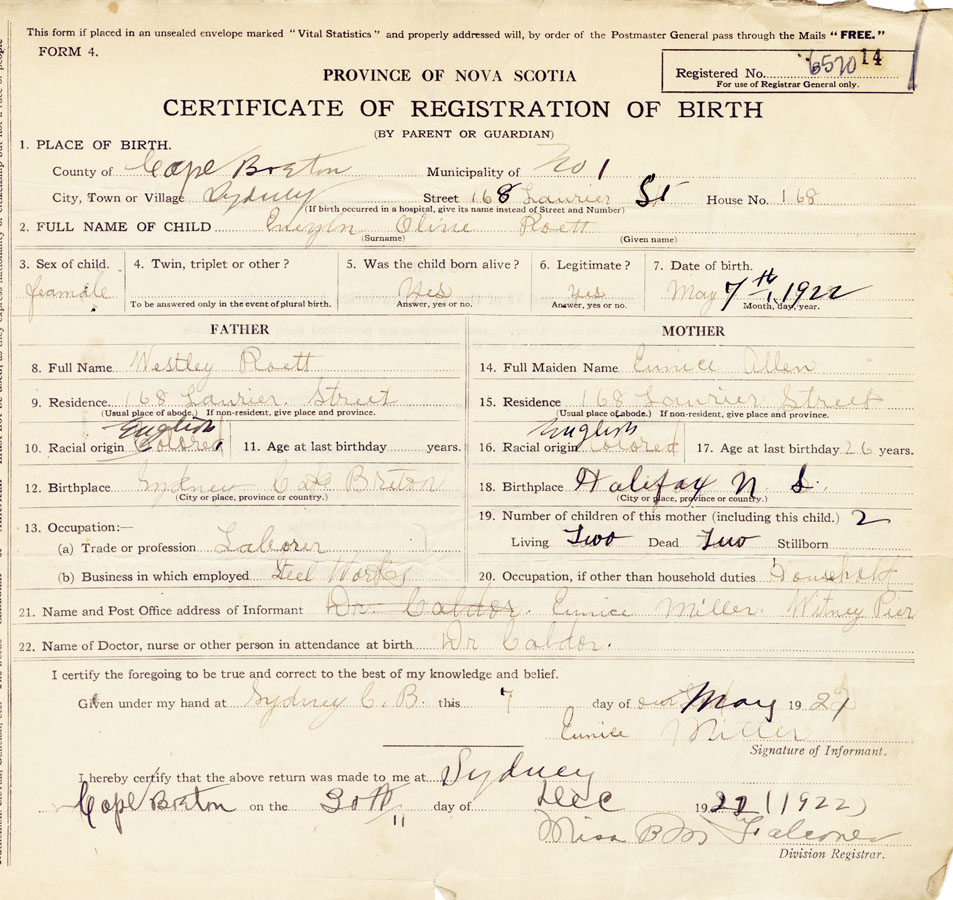 This form if placed in an unsealed envelope marked "Vital Statistics" and properly addressed will, by order of the Postmaster General pass through the Mails "FREE."
FORM 4.
Registered No. 6570 14
For use of Registrar General only.
PROVINCE OF NOVA SCOTIA
CERTIFICATE OF REGISTRATION OF BIRTH
(BY PARENT OR GUARDIAN)
1. PLACE OF BIRTH.
County of Cape Breton Municipality of No 1
City, Town or Village Sydney Street 168 Laurier St House No. 168
(If birth occurred in a hospital, give its name instead of Street and Number)
2. FULL NAME OF CHILD Oline Roett
(Surname) (Given name)
3. Sex of child. 4. Twin, triplet or other? 5. Was the child born alive? 6. Legitimate? 7. Date of birth.
feamale Yes yes May 7th, 1922
To be answered only in the event of plural birth. Answer, yes or no. Answer, yes or no. Month, day, year.
FATHER MOTHER
8. Full Name Westley Roett 14. Full Maiden Name Eunice Allen
9. Residence 168 Laurier. Street 15. Residence 168 Laurier Street
(Usual place of abode.) If non-resident, give place and province. (Usual place of abode.) If non-resident, give place and province.
English English
10. Racial origin Colored 11. Age at last birthday years. 16. Racial origin Colored 17. Age at last birthday 26 years.
12. Birthplace Sydney Breton 18. Birthplace Halifax N. S.
(City or place, province or country.) (City or place, province or country.)
13. Occupation:— 19. Number of children of this mother (including this child.) 2
(a) Trade or profession Laborer Living Two Dead Two Stillborn
(b) Business in which employed Steel Works 20. Occupation, if other than household duties Household
21. Name and Post Office address of Informant Dr. Caldor. Eunice Miller. Witney Pier
22. Name of Doctor, nurse or other person in attendance at birth Dr Caldor.
I certify the foregoing to be true and correct to the best of my knowledge and belief.
Given under my hand at Sydney C. B. this 7 day of May 19 22
Eunice Miller
Signature of Informant.
I hereby certify that the above return was made to me at Sydney
Cape Breton on the 30th day of Dec 1922 (1922)
Miss B M Falconer
Division Registrar.